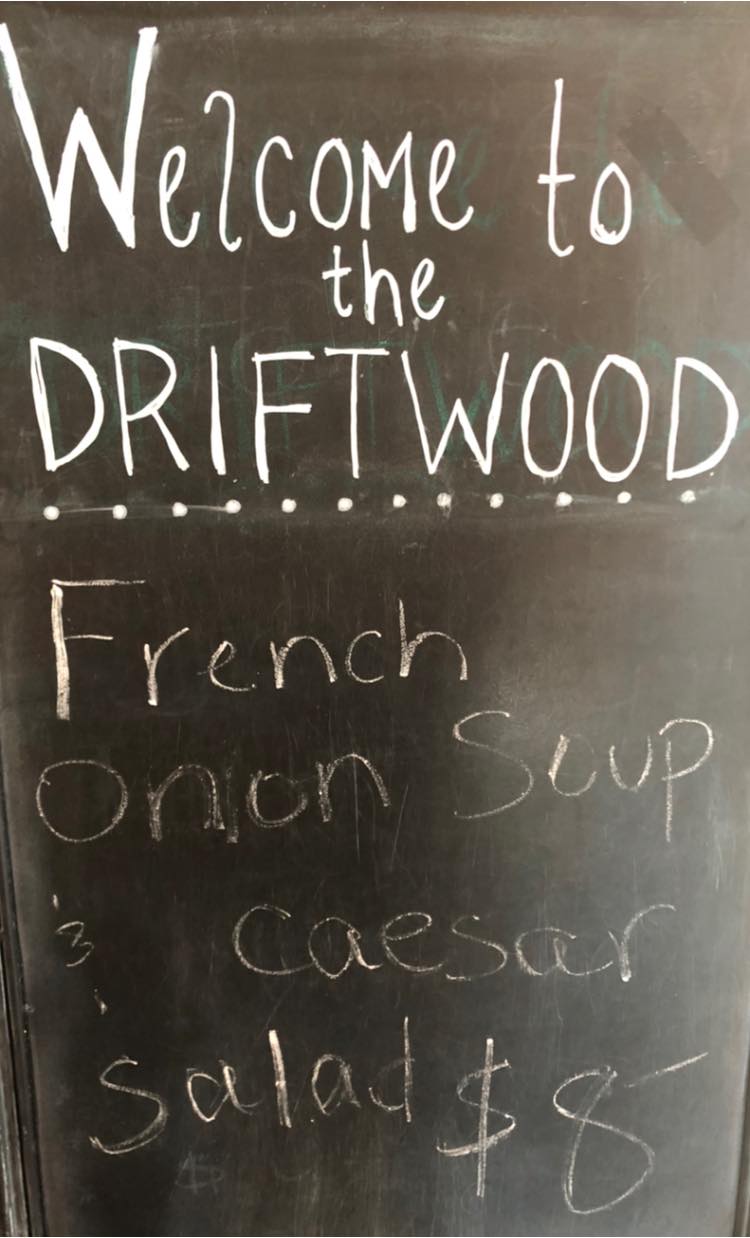 Welcome to
the
DRIFTWOOD
French
Onion Soup
& Caesar
Salad $8-